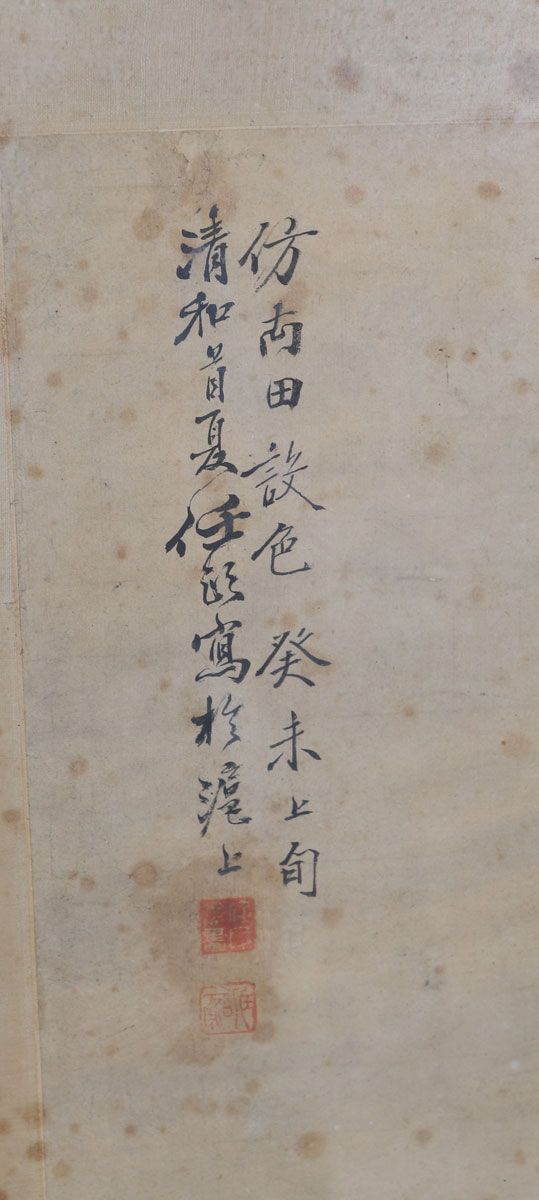 仿南田設色 癸未上旬
清和首夏任頤寫於滬上